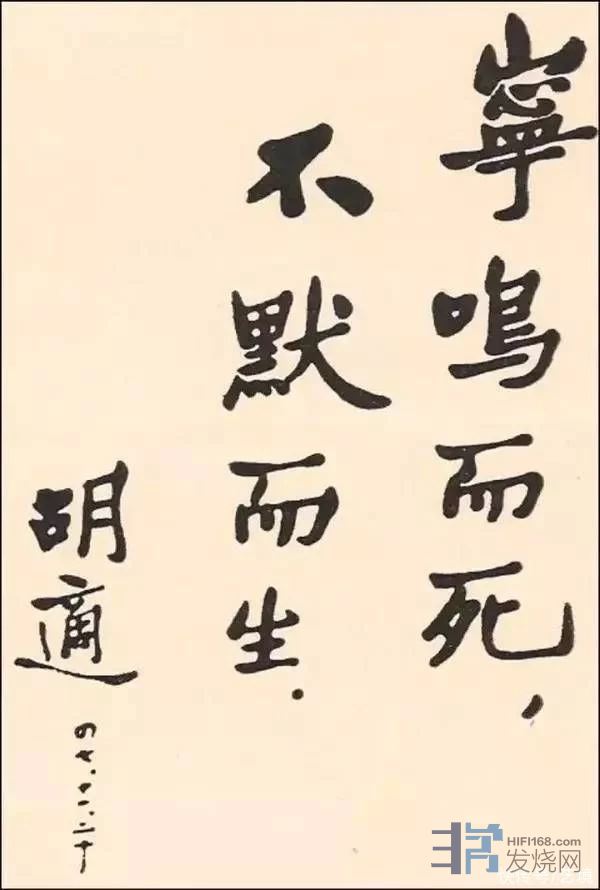 寧鳴而死，
不默而生．
胡適
四七．十一．二十
HIFI168.com
发烧网